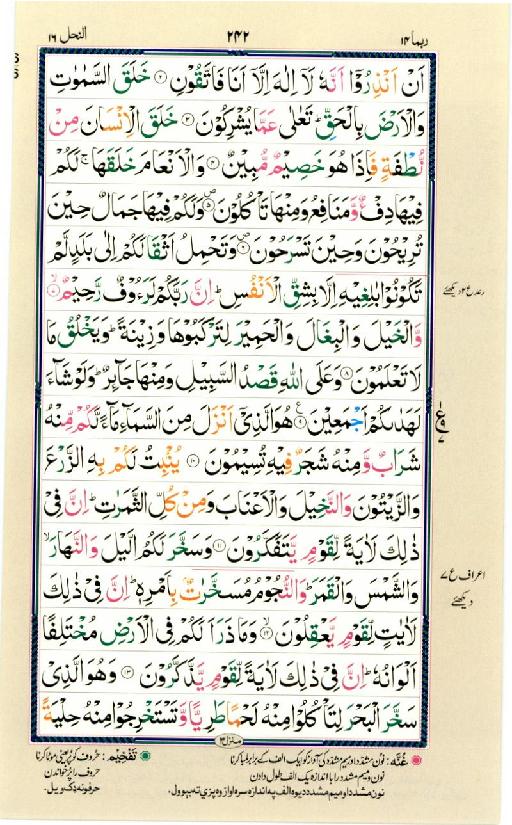 ربما ۱۴ ۲۴۲ النحل ۱۶
اَنۡ اَنۡذِرُوۡۤا اَنَّهٗ لَاۤ اِلٰهَ اِلَّاۤ اَنَا فَاتَّقُوۡنِ ۞۲ خَلَقَ السَّمٰوٰتِ
وَالۡاَرۡضَ بِالۡحَقِّ‌ؕ تَعٰلٰى عَمَّا يُشۡرِكُوۡنَ ۞۳ خَلَقَ الۡاِنۡسَانَ مِنۡ
نُّطۡفَةٍ فَاِذَا هُوَ خَصِيۡمٌ مُّبِيۡنٌ ۞۴ وَالۡاَنۡعَامَ خَلَقَهَا‌ۚ لَـكُمۡ
فِيۡهَا دِفۡءٌ وَّمَنَافِعُ وَمِنۡهَا تَاۡكُلُوۡنَ ۞۵ وَلَكُمۡ فِيۡهَا جَمَالٌ حِيۡنَ
تُرِيۡحُوۡنَ وَحِيۡنَ تَسۡرَحُوۡنَ ۞۶ وَتَحۡمِلُ اَثۡقَالَـكُمۡ اِلٰى بَلَدٍ لَّمۡ
تَكُوۡنُوۡا بٰلِغِيۡهِ اِلَّا بِشِقِّ الۡاَنۡفُسِ‌ؕ اِنَّ رَبَّكُمۡ لَرَءُوۡفٌ رَّحِيۡمٌۙ ۞۷
وَّالۡخَيۡلَ وَالۡبِغَالَ وَالۡحَمِيۡرَ لِتَرۡكَبُوۡهَا وَزِيۡنَةً‌ ؕ وَيَخۡلُقُ مَا
لَا تَعۡلَمُوۡنَ ۞۸ وَعَلَى اللّٰهِ قَصۡدُ السَّبِيۡلِ وَمِنۡهَا جَآئِرٌ‌ؕ وَلَوۡ شَآءَ
لَهَدٰٮكُمۡ اَجۡمَعِيۡنَ ۞۹ هُوَ الَّذِىۡۤ اَنۡزَلَ مِنَ السَّمَآءِ مَآءً‌ لَّـكُمۡ مِّنۡهُ
شَرَابٌ وَّمِنۡهُ شَجَرٌ فِيۡهِ تُسِيۡمُوۡنَ ۞۱۰ يُنۡۢبِتُ لَـكُمۡ بِهِ الزَّرۡعَ
وَالزَّيۡتُوۡنَ وَالنَّخِيۡلَ وَالۡاَعۡنَابَ وَمِنۡ كُلِّ الثَّمَرٰتِ‌ؕ اِنَّ فِىۡ
ذٰلِكَ لَاٰيَةً لِّقَوۡمٍ يَّتَفَكَّرُوۡنَ ۞۱۱ وَسَخَّرَ لَـكُمُ الَّيۡلَ وَالنَّهَارَۙ
وَالشَّمۡسَ وَالۡقَمَرَ‌ؕ وَالنُّجُوۡمُ مُسَخَّرٰتٌۢ بِاَمۡرِهٖؕ اِنَّ فِىۡ ذٰلِكَ
لَاٰيٰتٍ لِّقَوۡمٍ يَّعۡقِلُوۡنَۙ ۞۱۲ وَمَا ذَرَاَ لَـكُمۡ فِى الۡاَرۡضِ مُخۡتَلِفًا
اَلۡوَانُهٗ‌ؕ اِنَّ فِىۡ ذٰلِكَ لَاٰيَةً لِّقَوۡمٍ يَّذَّكَّرُوۡنَ ۞۱۳ وَهُوَ الَّذِىۡ
سَخَّرَ الۡبَحۡرَ لِتَاۡكُلُوۡا مِنۡهُ لَحۡمًا طَرِيًّا وَّتَسۡتَخۡرِجُوۡا مِنۡهُ حِلۡيَةً
رعد ع ۲ دیکھئے
ع ۷
اعراف ع ۷
دیکھئے
منزل ۳
غُنَّه: نون مشدد اور میم مشدد کی آواز کو ایک الف کے برابر لمبا کرنا
نون و میم مشدد را با اندازه یک الف طول دادن
تَفْخِیْم: حروف کو پُر یعنی موٹا کرنا
حروف را پُر خواندن